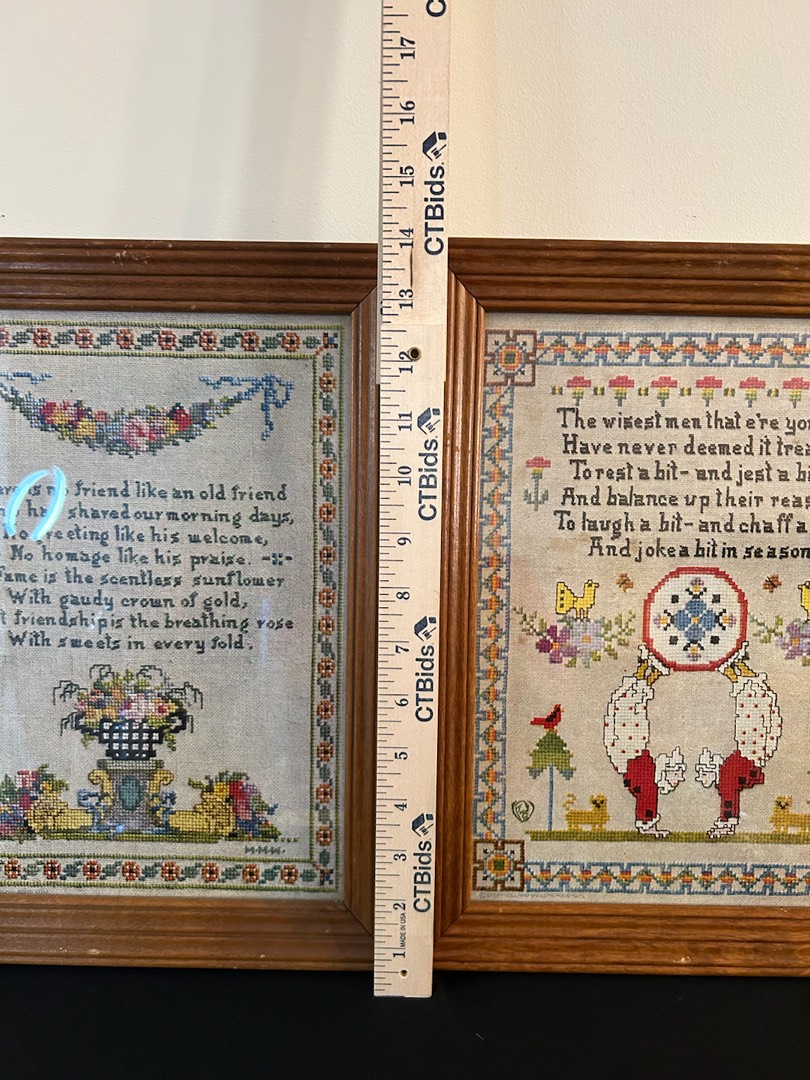 17
16
15
14
13
12
11
10
9
8
7
6
5
4
3
2
1
MADE IN USA
CTBids.
CTBids.
CTBids.
CTBids.
friend like an old friend
shared our morning days,
greeting like his welcome,
No homage like his praise.
Fame is the scentless sunflower
With gaudy crown of gold;
friendship is the breathing rose
With sweets in every fold.
M·M·W·
The wisest men that e're
Have never deemed it
To rest a bit- and jest a
And balance up their
To laugh a bit- and chaff a
And joke a bit in season